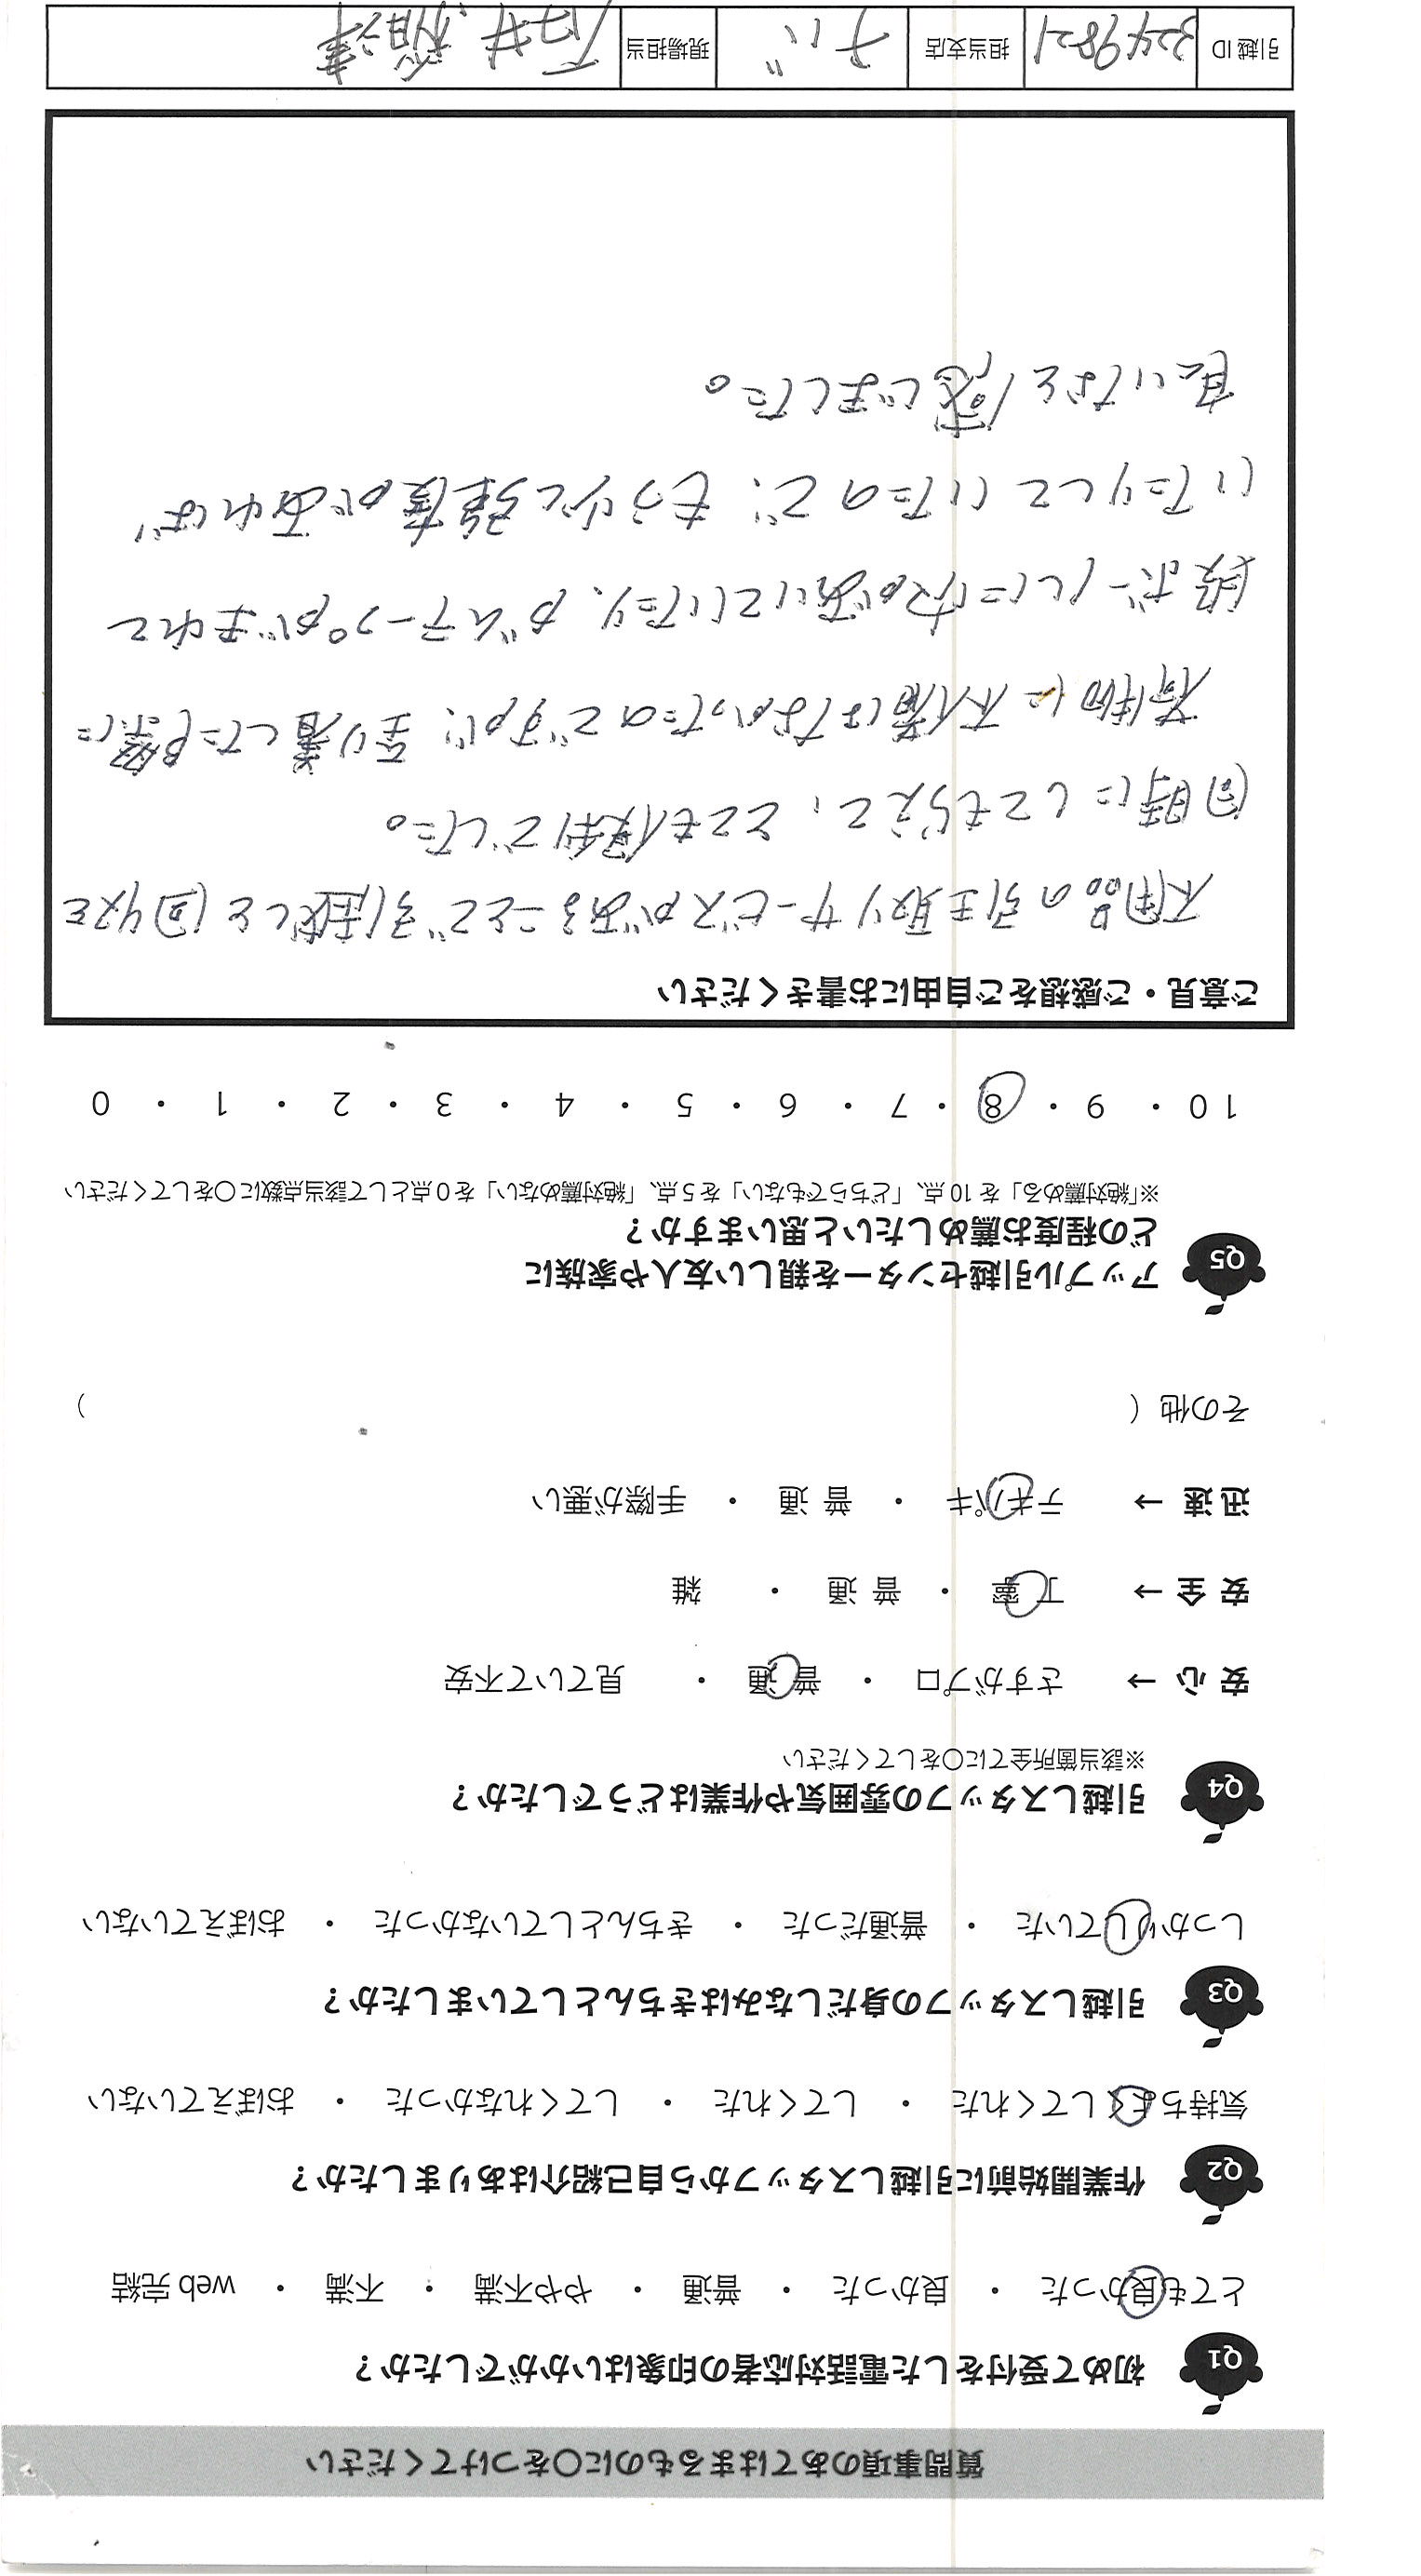 質問事項のあてはまるものに○をつけてください
Q1 初めて受付をした電話対応者の印象はいかがでしたか？
とても良かった ・ 良かった ・ 普通 ・ やや不満 ・ 不満 ・ web 完結
Q2 作業開始前に引越しスタッフから自己紹介はありましたか？
気持ちよくしてくれた ・ してくれた ・ してくれなかった ・ おぼえていない
Q3 引越しスタッフの身だしなみはきちんとしていましたか？
しっかりしていた ・ 普通だった ・ きちんとしていなかった ・ おぼえていない
Q4 引越しスタッフの雰囲気や作業はどうでしたか？
※該当箇所全てに○をしてください
安 心 → さすがプロ ・ 普 通 ・ 見ていて不安
安 全 → 丁 寧 ・ 普 通 ・ 雑
迅 速 → テキパキ ・ 普 通 ・ 手際が悪い
その他（ ）
Q5 アップル引越センターを親しい友人や家族に
どの程度お薦めしたいと思いますか？
※「絶対薦める」を 10 点、「どちらでもない」を 5 点、「絶対薦めない」を 0 点として該当点数に○をしてください
10 ・ 9 ・ 8 ・ 7 ・ 6 ・ 5 ・ 4 ・ 3 ・ 2 ・ 1 ・ 0
ご意見・ご感想をご自由にお書きください
不用品の引き取りサービスがあることで引越しと回収を
同時にしてもらえて、とても便利でした。
荷物に不備はなかったのですが、到着した際に
段ボールに穴があいていたり、ガムテープがきれて
いたりしていたので、もう少し強度があれば
良いなと感じました。
引越 ID 3249821 担当支店 チバ 現場担当 石井